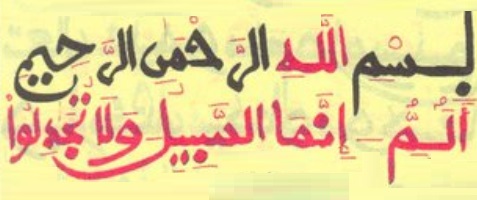 بِسْمِ اللَّهِ الرَّحْمَٰنِ الرَّحِيمِ
أَلَمُّ إِنَّمَا السَّبِيلُ وَلَا تُجَدِلُوا